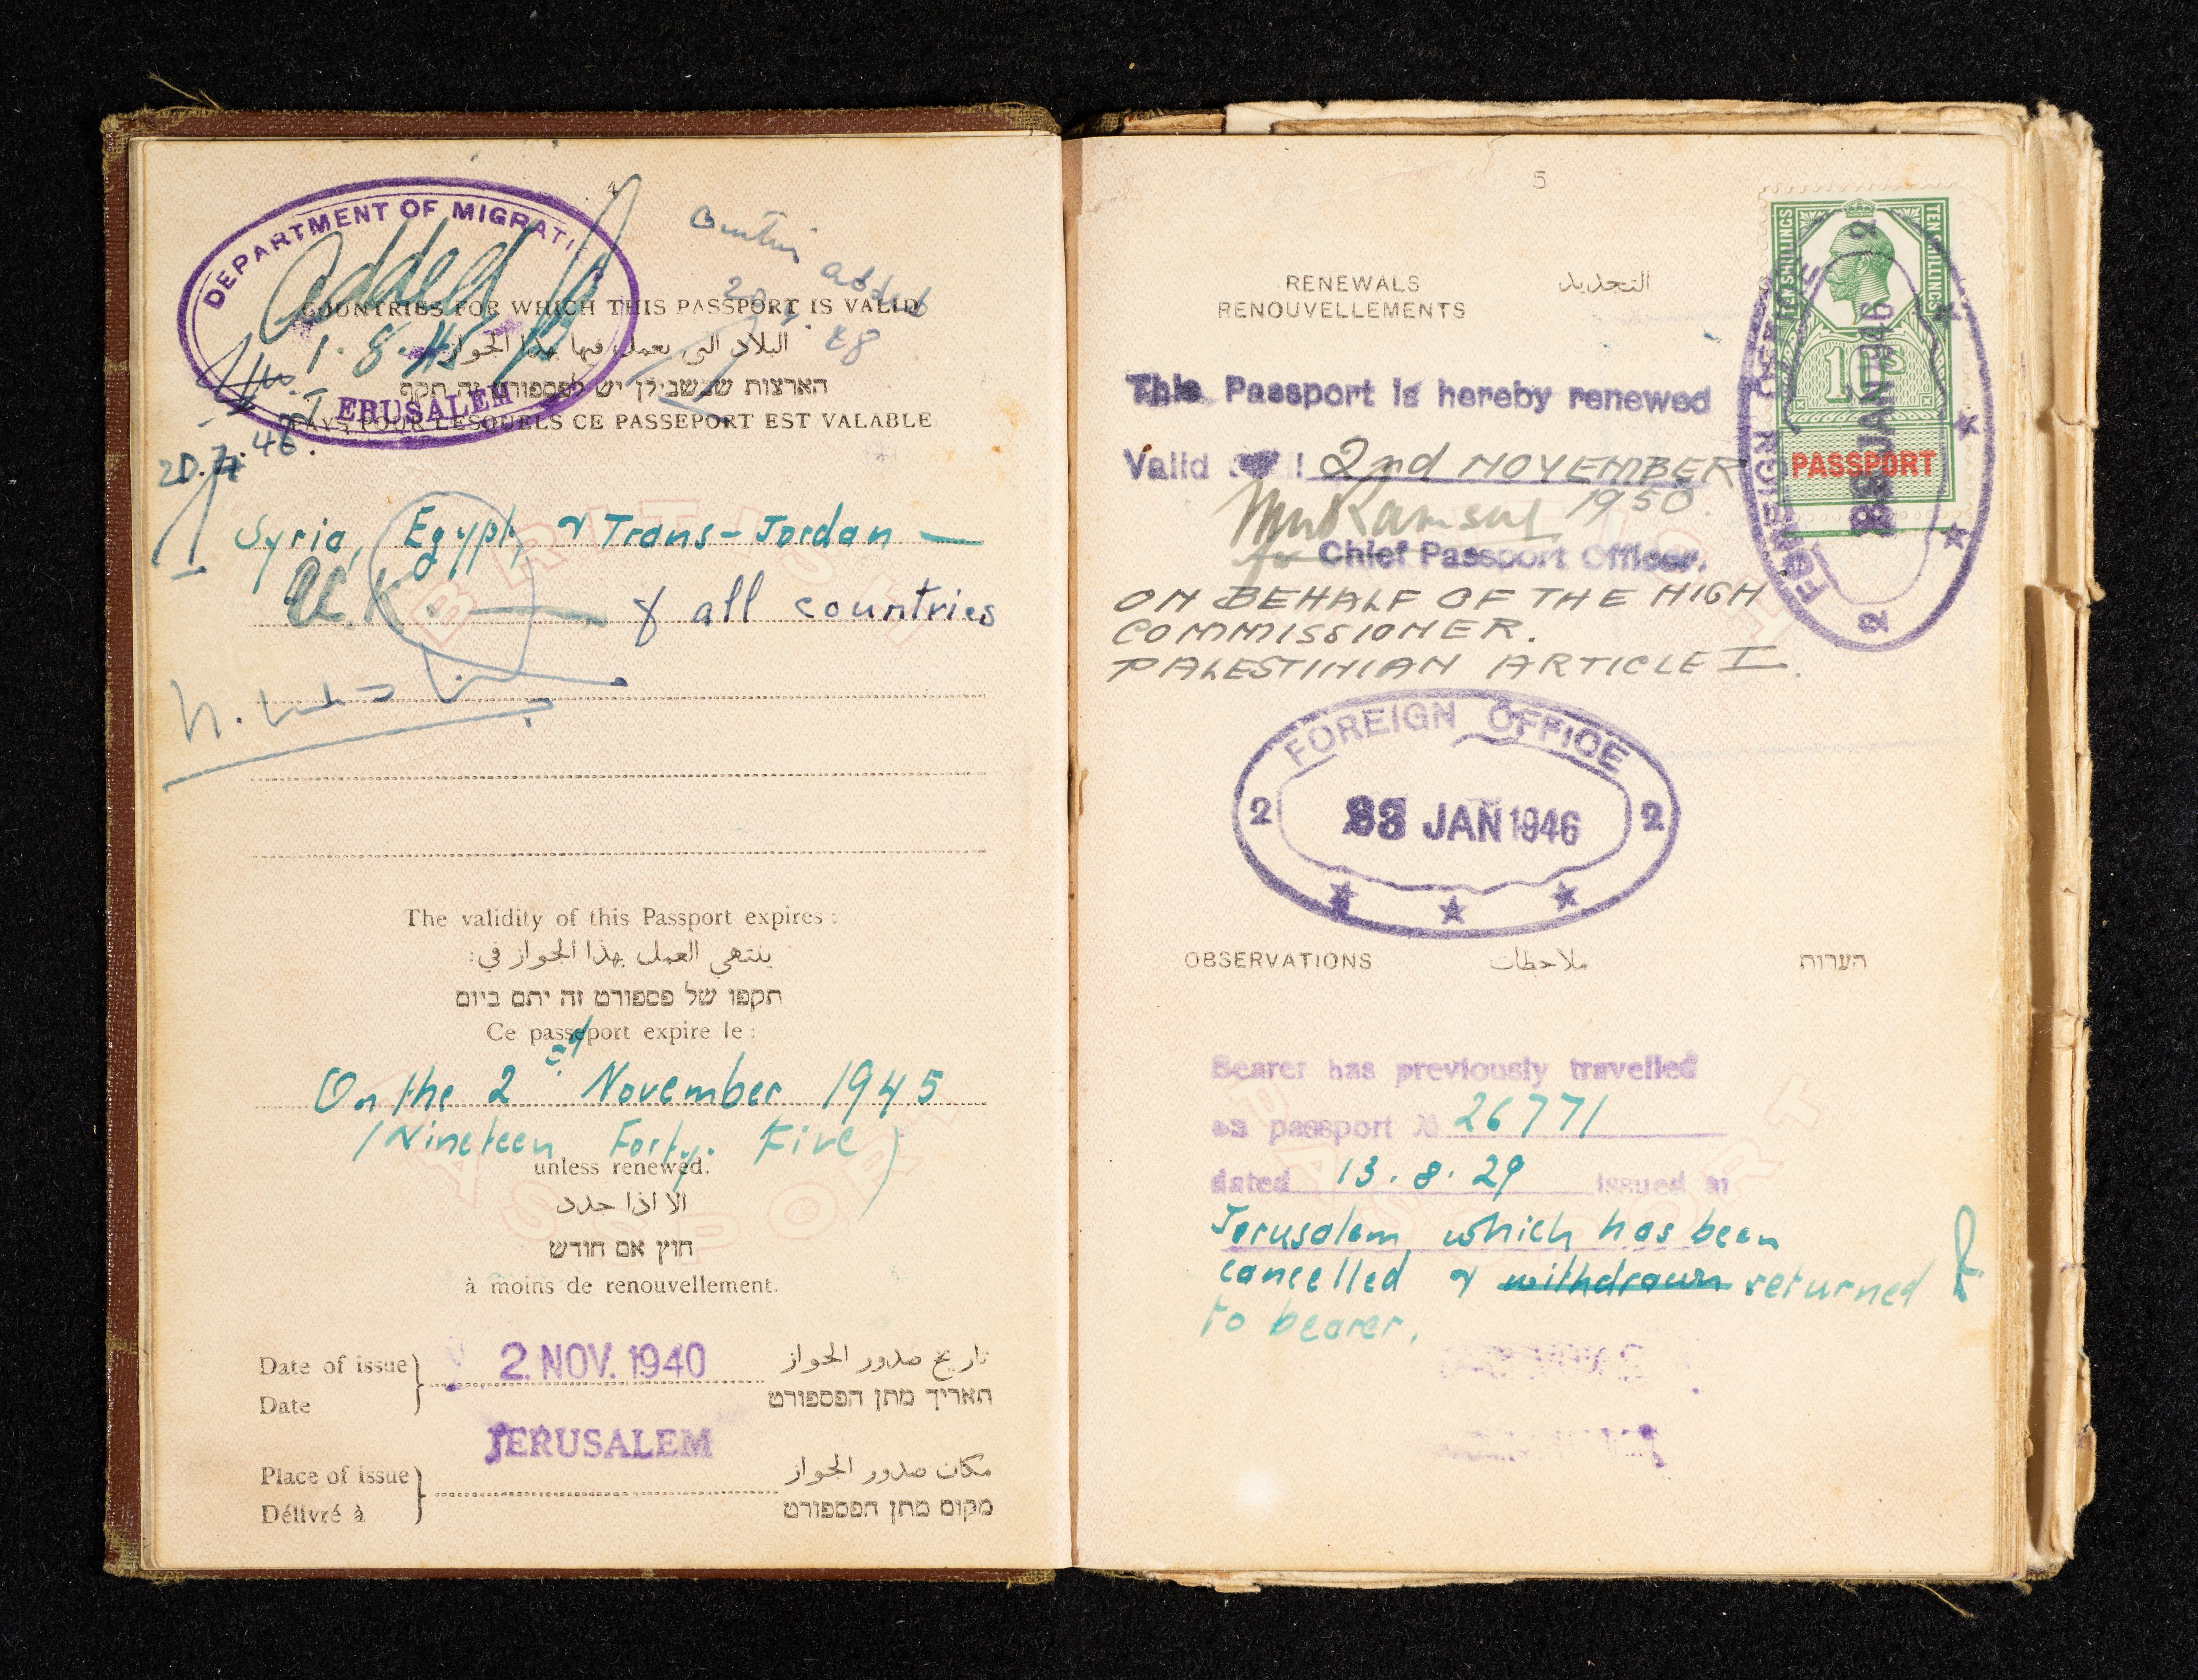 4
DEPARTMENT OF MIGRATI
added
1.8.45
JERUSALEM
added
20.
48
COUNTRIES FOR WHICH THIS PASSPORT IS VALID
البلاد التي يعمل فيها بهذا الجواز
הארצות שבשבילן יש לפספורט זה תקף
PAYS POUR LESQUELS CE PASSEPORT EST VALABLE
Syria, Egypt, & Trans-Jordan —
U.K. — & all countries
BRITISH
The validity of this Passport expires:
ينتهي العمل بهذا الجواز في:
תקפו של פספורט זה יתם ביום
Ce passeport expire le:
On the 2nd November 1945
(Nineteen Forty. Five)
unless renewed.
الا اذا جدد
חוץ אם חודש
à moins de renouvellement.
PASSPORT
Date of issue
Date
2. NOV. 1940
تاريخ صدور الجواز
תאריך מתן הפספורט
JERUSALEM
Place of issue
Délivré à
مكان صدور الجواز
מקום מתן הפספורט
5
RENEWALS
التجديد
RENOUVELLEMENTS
TEN SHILLINGS
TEN SHILLINGS
10s
PASSPORT
FOREIGN OFFICE
JAN 1946
2
2
This Passport is hereby renewed
Valid 2nd NOVEMBER
1950.
for Chief Passport Officer.
ON BEHALF OF THE HIGH
COMMISSIONER.
PALESTINIAN ARTICLE I.
FOREIGN OFFICE
2 JAN 1946 2
OBSERVATIONS
ملاحظات
הערות
Bearer has previously travelled
on passport № 26771
dated 13.8.29 issued at
Jerusalem which has been
cancelled & withdrawn returned
to bearer.
PASSPORT